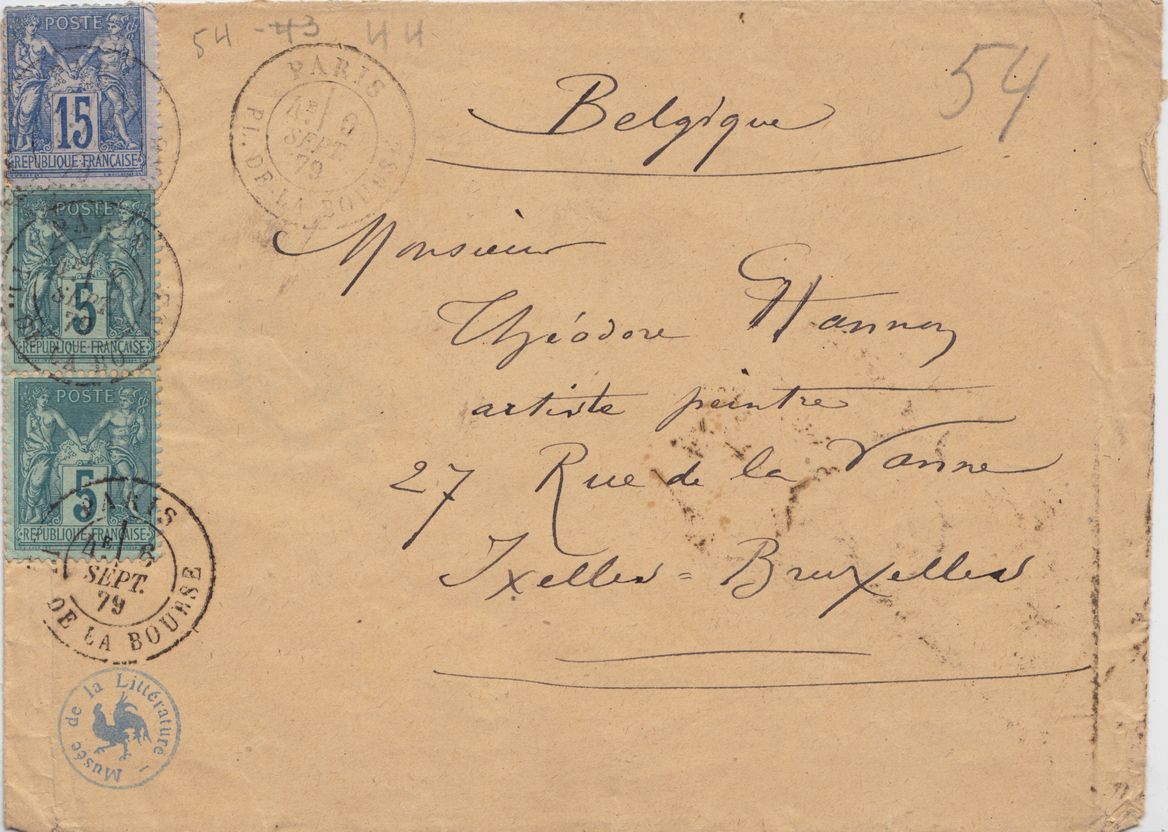 54 - 43 44
54
POSTE
15
REPUBLIQUE FRANÇAISE
POSTE
5
REPUBLIQUE FRANÇAISE
POSTE
5
REPUBLIQUE FRANÇAISE
PARIS
PL. DE LA BOURSE
4E 6
SEPT.
79
PARIS
DE LA BO
SEPT
79
PARIS
4E 6
SEPT.
79
DE LA BOURSE
Belgique
Monsieur
Théodore Hannon
artiste peintre
27 Rue de la Vanne
Ixelles = Bruxelles
Musée de la Littérature -